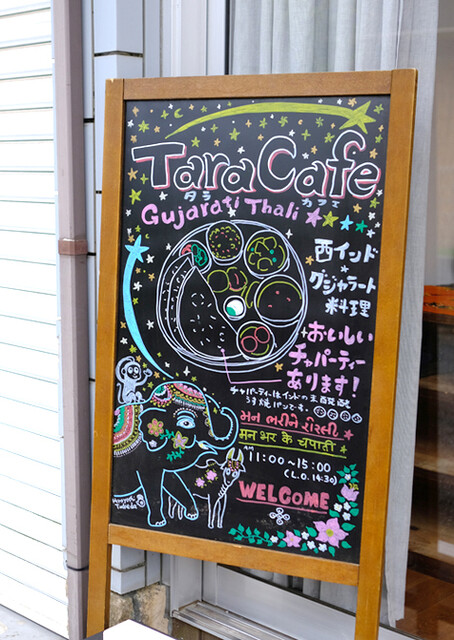 Tara Cafe
タラ カフェ
Gujarati Thali
西インド
グジャラート
料理
おいしい
チャパーティー
あります!
チャパーティーはインドの主
うす焼パンです。
મન ભરીને રોટલી
मन भर के चपाती
AM
11:00~15:00
(L.O. 14:30)
WELCOME
Takeda